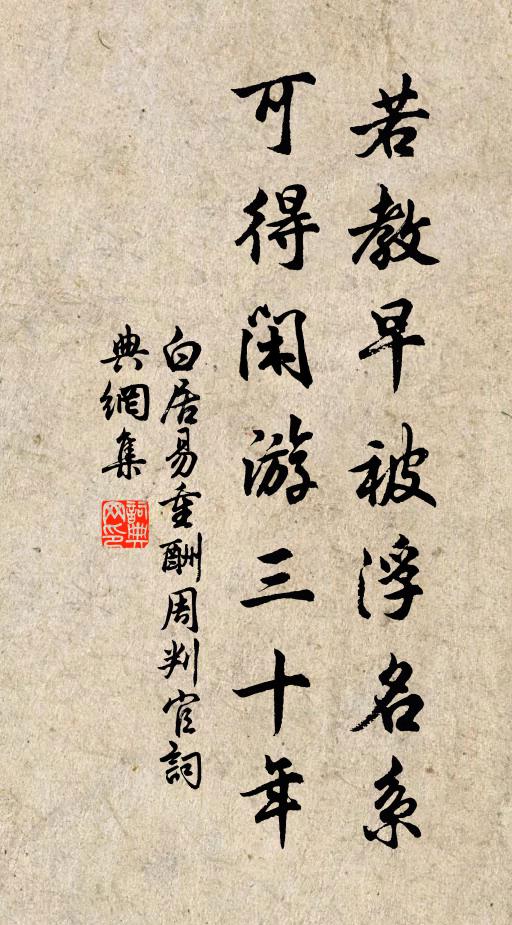 若教早被浮名系
可得闲游三十年
白居易重酬周判官詞
典網集
詞典
网印